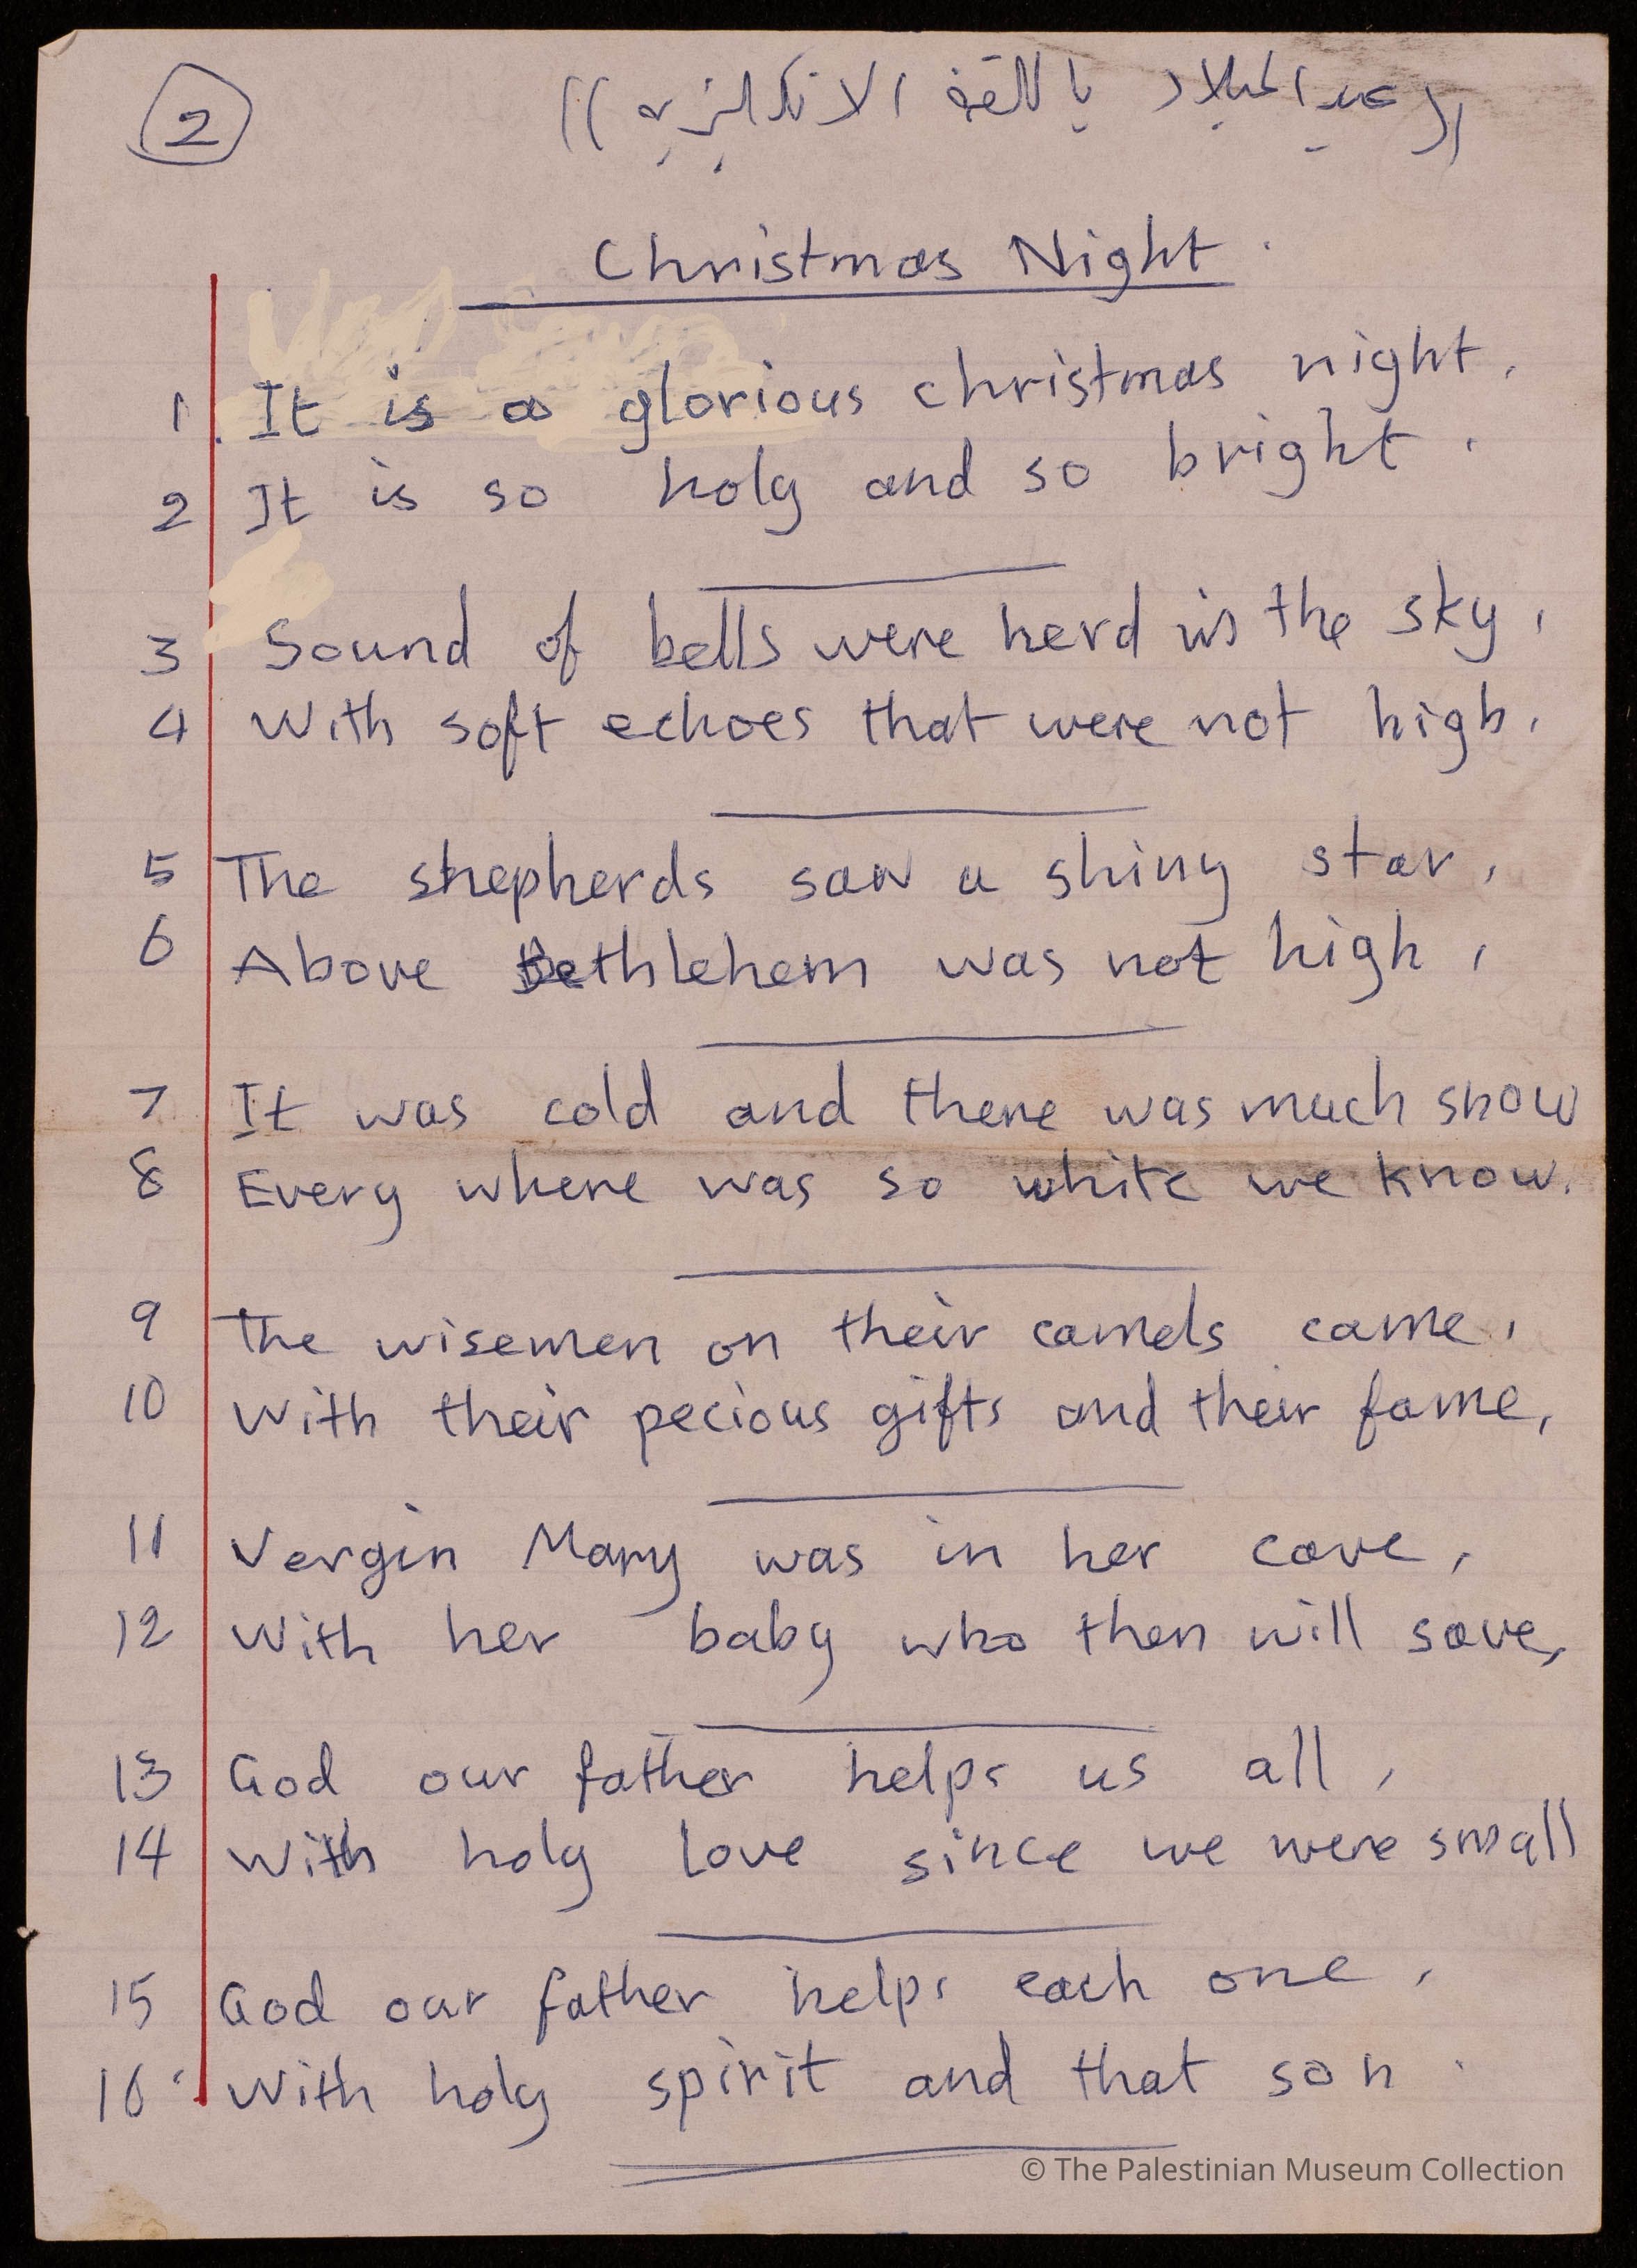 2
((عيد الميلاد باللغة الانكليزيه))
Christmas Night.
1. It is a glorious christmas night,
2 It is so holy and so bright.
3 Sound of bells were herd in the sky,
4 With soft echoes that were not high.
5 The shepherds saw a shiny star,
6 Above Bethlehem was not high,
7 It was cold and there was much snow
8 Every where was so white we know.
9 The wisemen on their camels came,
10 With their pecious gifts and their fame,
11 Vergin Mary was in her cave,
12 With her baby who then will save,
13 God our father helps us all,
14 With holy love since we were small
15 God our father helps each one,
16. With holy spirit and that son.
© The Palestinian Museum Collection